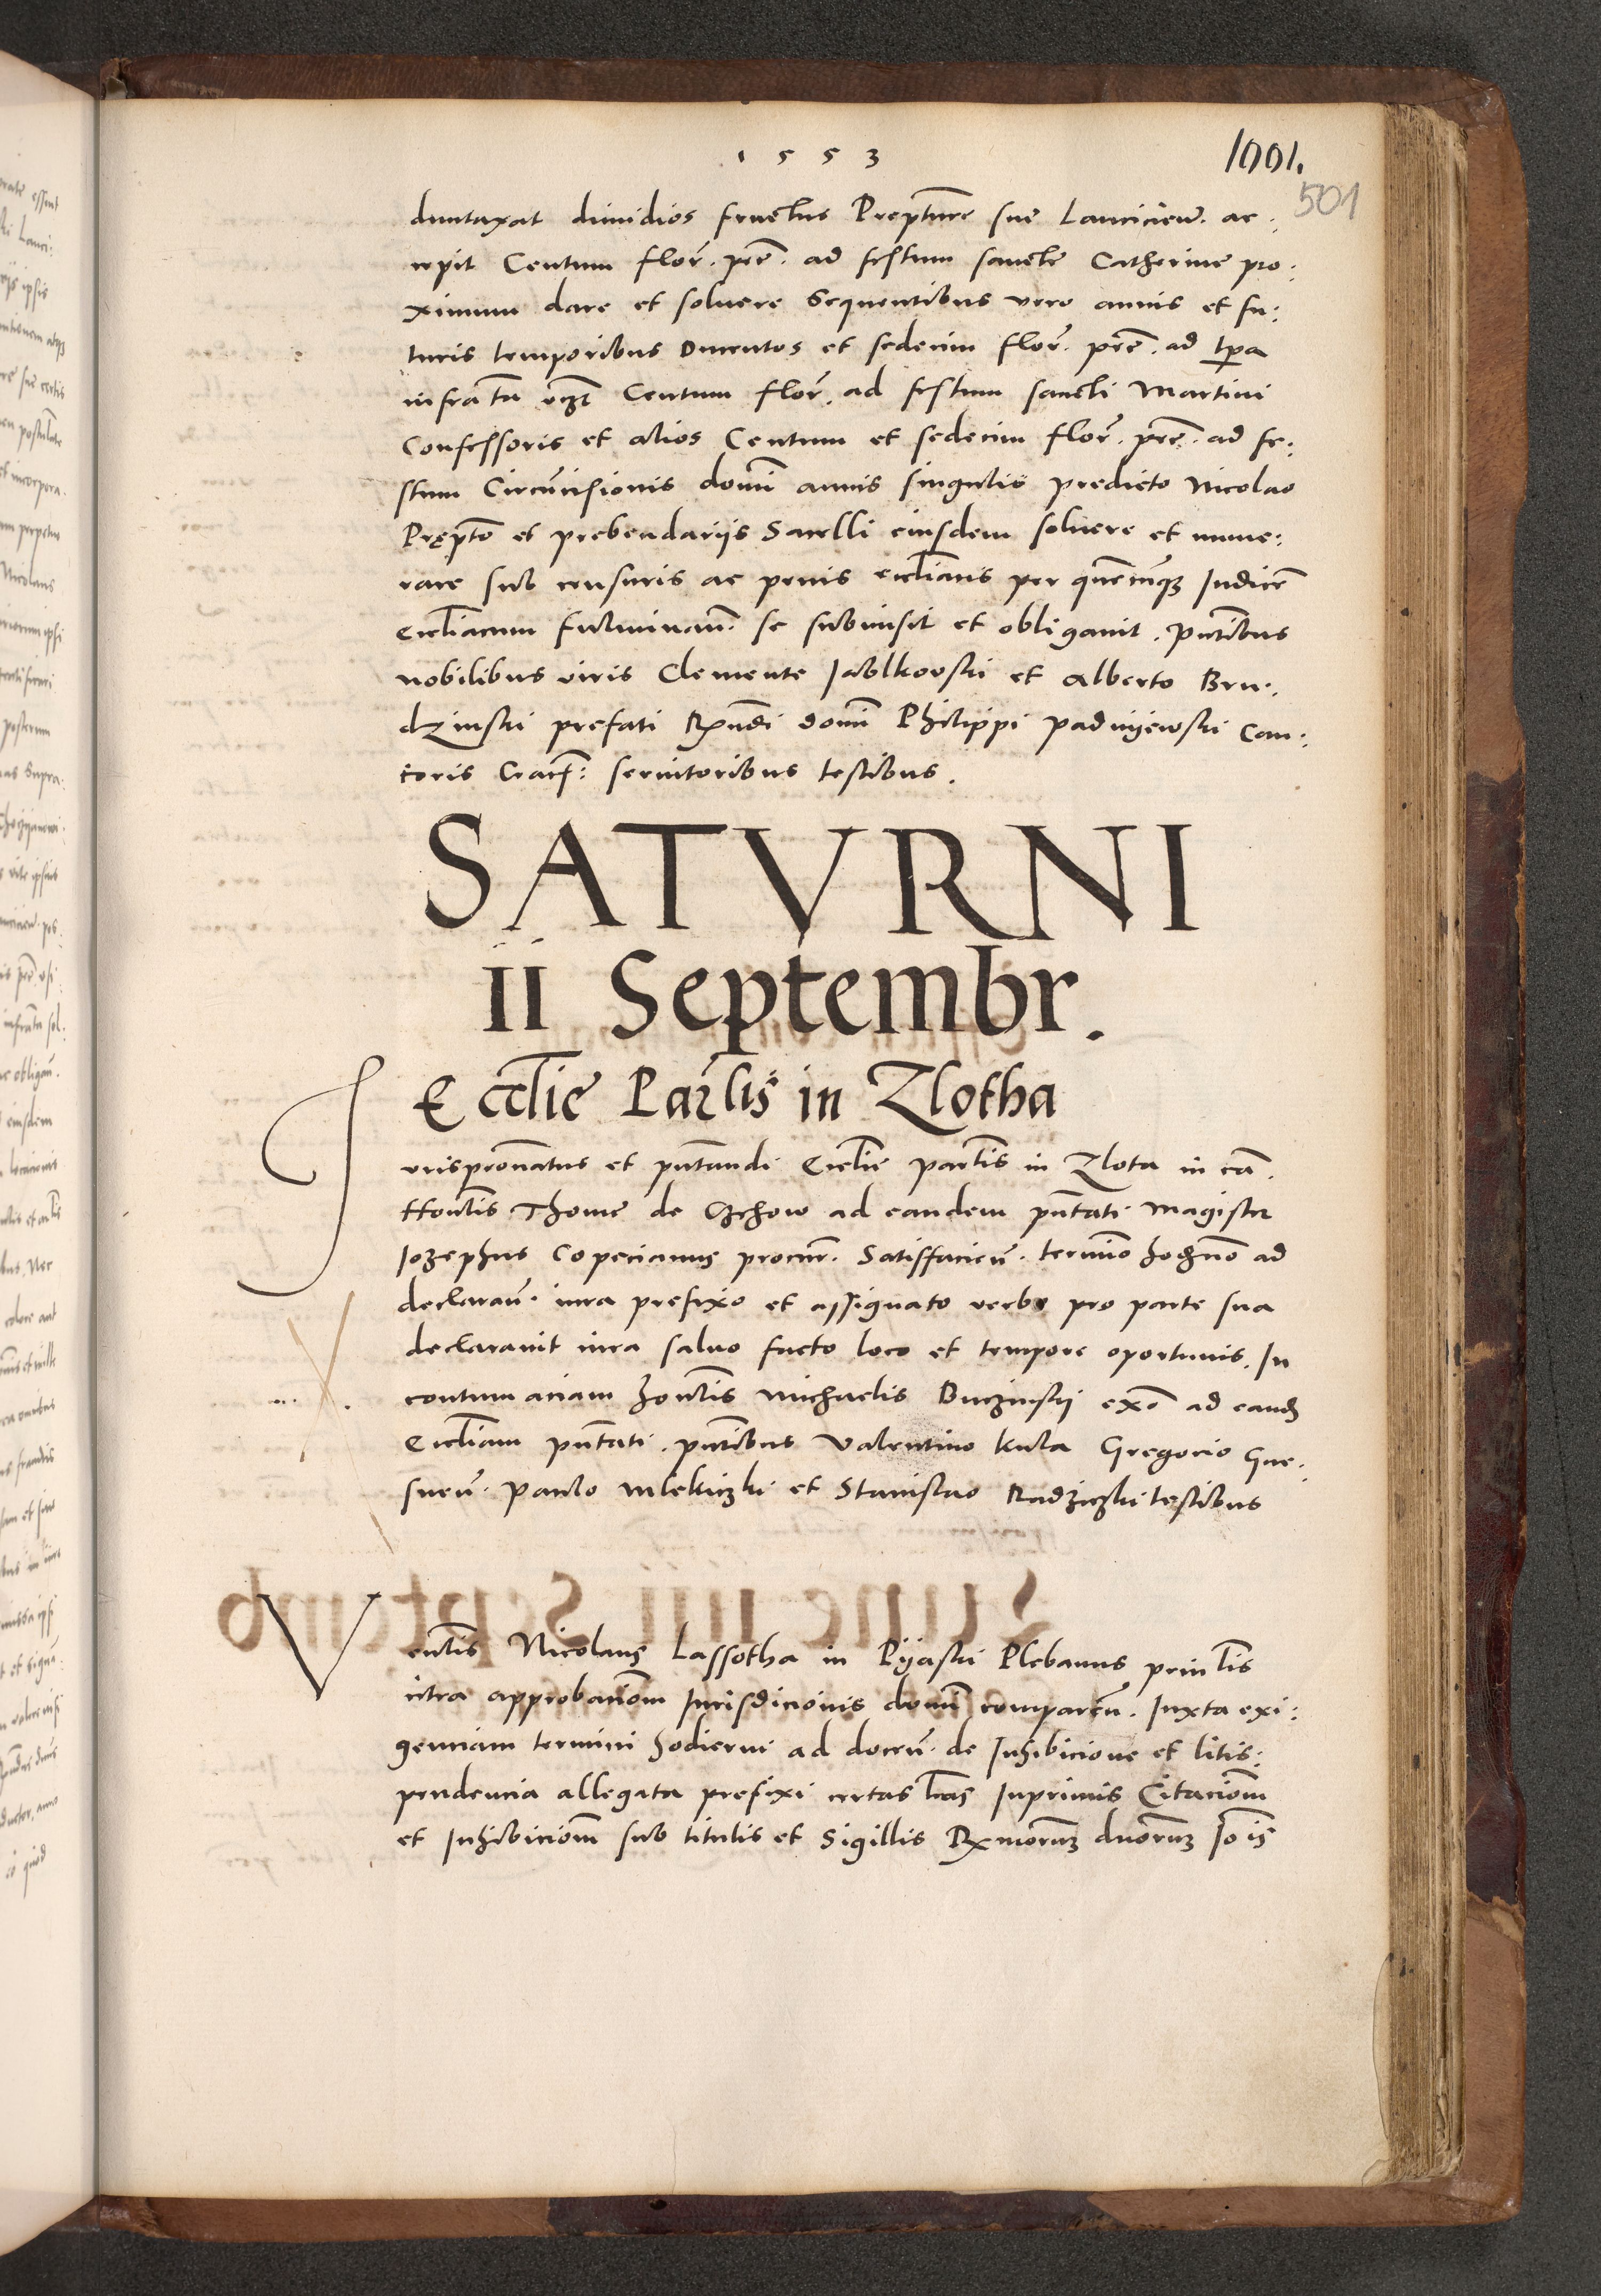 1553
1001.
501
duntaxat dimidios fructus Prept̃ure sue Lancicien̄. ac:
cepit Centum flor̄. pec̄. ad festum sancte Catherine pro:
ximum dare et soluere Sequentibus vero annis et fu:
turis temporibus Ducentos et sedecim flor̄. pec̄. ad tp̄a
infrãta vz̄ Centum flor̄. ad festum sancti Martini
Confessoris et alios Centum et sedecim flor̄. pec̄. ad fe:
stum Circũcisionis domĩ annis singulis predicto Nicolao
Prępt̃o et prebendarijs Sacelli eiusdem soluere et nume:
rare sub censuris ac penis eccl̃ianis per quẽcũq₃ Iudicẽ
eccl̃iacum fulminañ. se submisit et obligauit. p̃ntibus
nobilibus viris Clemente Jablkovski et Alberto Bru:
dzinski prefati R̃ndi domĩ Philippi Padnijewski Can:
toris Crac̃: seruitoribus testibus.
SATVRNI
ii Septembr.
Ecc̃lie Par̃lis in Zlotha
Jurisprõnatus et p̃ntandi Eccl̃ie par̃lis in Zlota in cã.
Hon̄lis Thome de Czchow ad eandem p̃ntati Magister
Iozephus Copecianus procur̄. Satisfacien̄. termĩo hodiẽno ad
declarañ. iura prefixo et assignato verbo pro parte sua
declarauit iura saluo facto loco et tempore oportunis. In
contumaciam hon̄lis Michaelis Buczinskij ex̄o ad eand̄
Eccl̃iam p̃ntati. p̃ntibus Valentino Kula Gregorio Gne:
snen̄. Paulo Mlekiczki et Stanislao Radziczki testibus
Ven̄lis Nicolaus Lassotha in Pijaski Plebanus prin̄lis
citra approbaciõm Iurisdicionis domĩ comparen̄. Iuxta exi:
genciam termini hodierni ad docen̄. de Inhibicione et litis:
pendencia allegata prefixi certas l̃ras Inprimis Citaciõm
et Inhibiciõm sub titulis et Sigillis R̃morum duorum Jo̅is